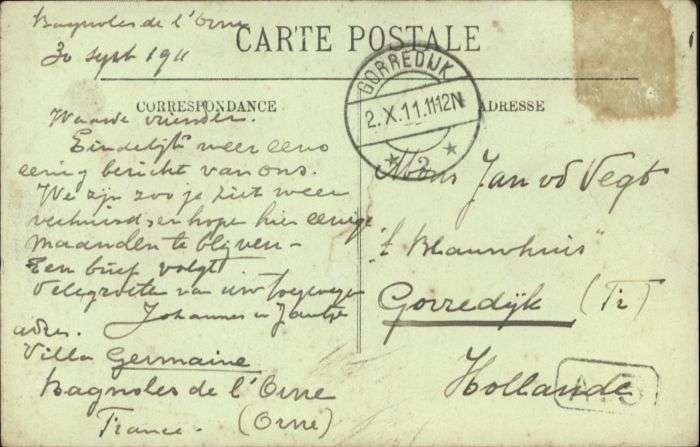 Bagnoles de l'Orne
30 sept 1911
CARTE POSTALE
CORRESPONDANCE
ADRESSE
GORREDIJK
2.X.11.11-12N
* 2 *
Waarde vrienden.
Eindelijk weer eens
eenig bericht van ons.
We zijn zoo je ziet weer
verhuisd, en hopen hier eenige
maanden te blijven -
Een brief volgt.
Velegroeten van uw toegenegen
Johannes en Jantje
adres.
Villa Germaine
Bagnoles de l'Orne
France. (Orne)
Mons Jan vd Vegt
"'t Blauwhuis"
Gorredijk (Fr)
Hollande